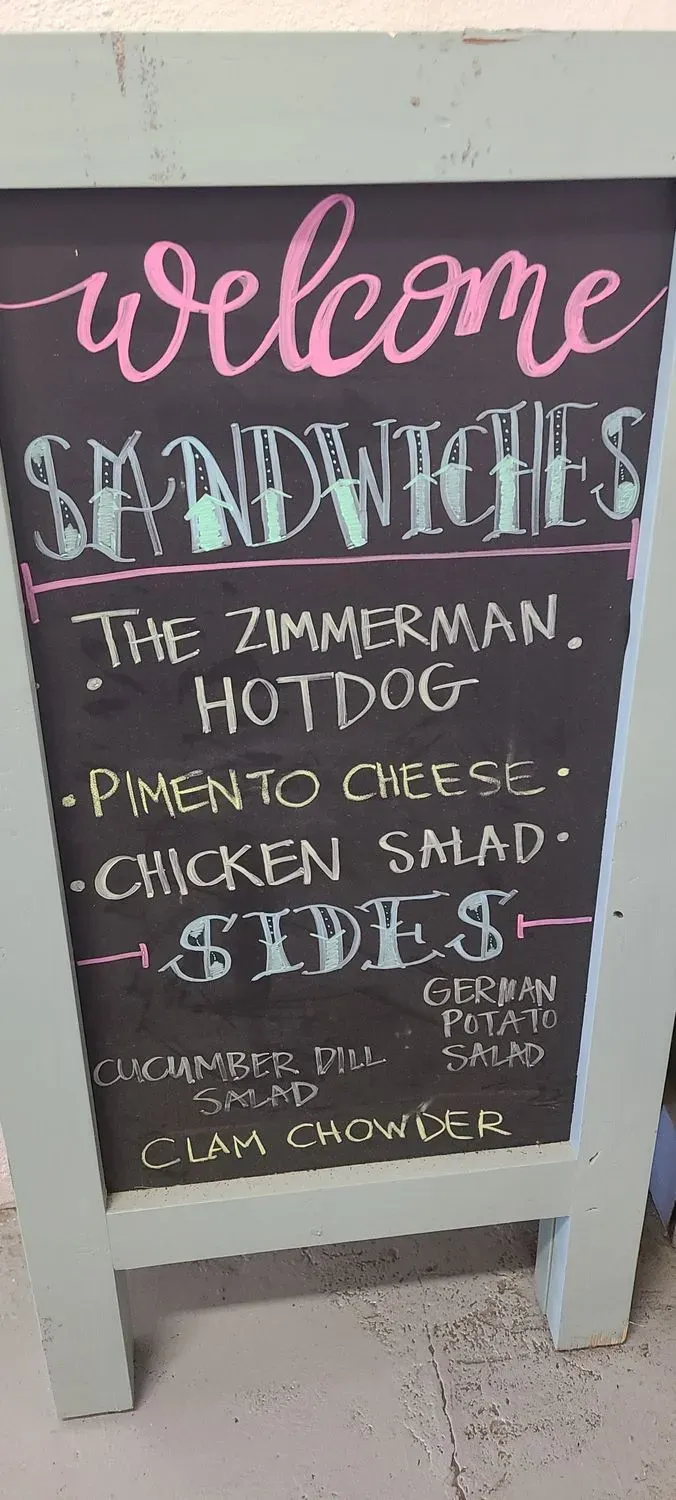 welcome
SANDWICHES
THE ZIMMERMAN.
. HOTDOG
. PIMENTO CHEESE .
. CHICKEN SALAD .
SIDES
GERMAN
POTATO
SALAD
CUCUMBER DILL
SALAD
CLAM CHOWDER